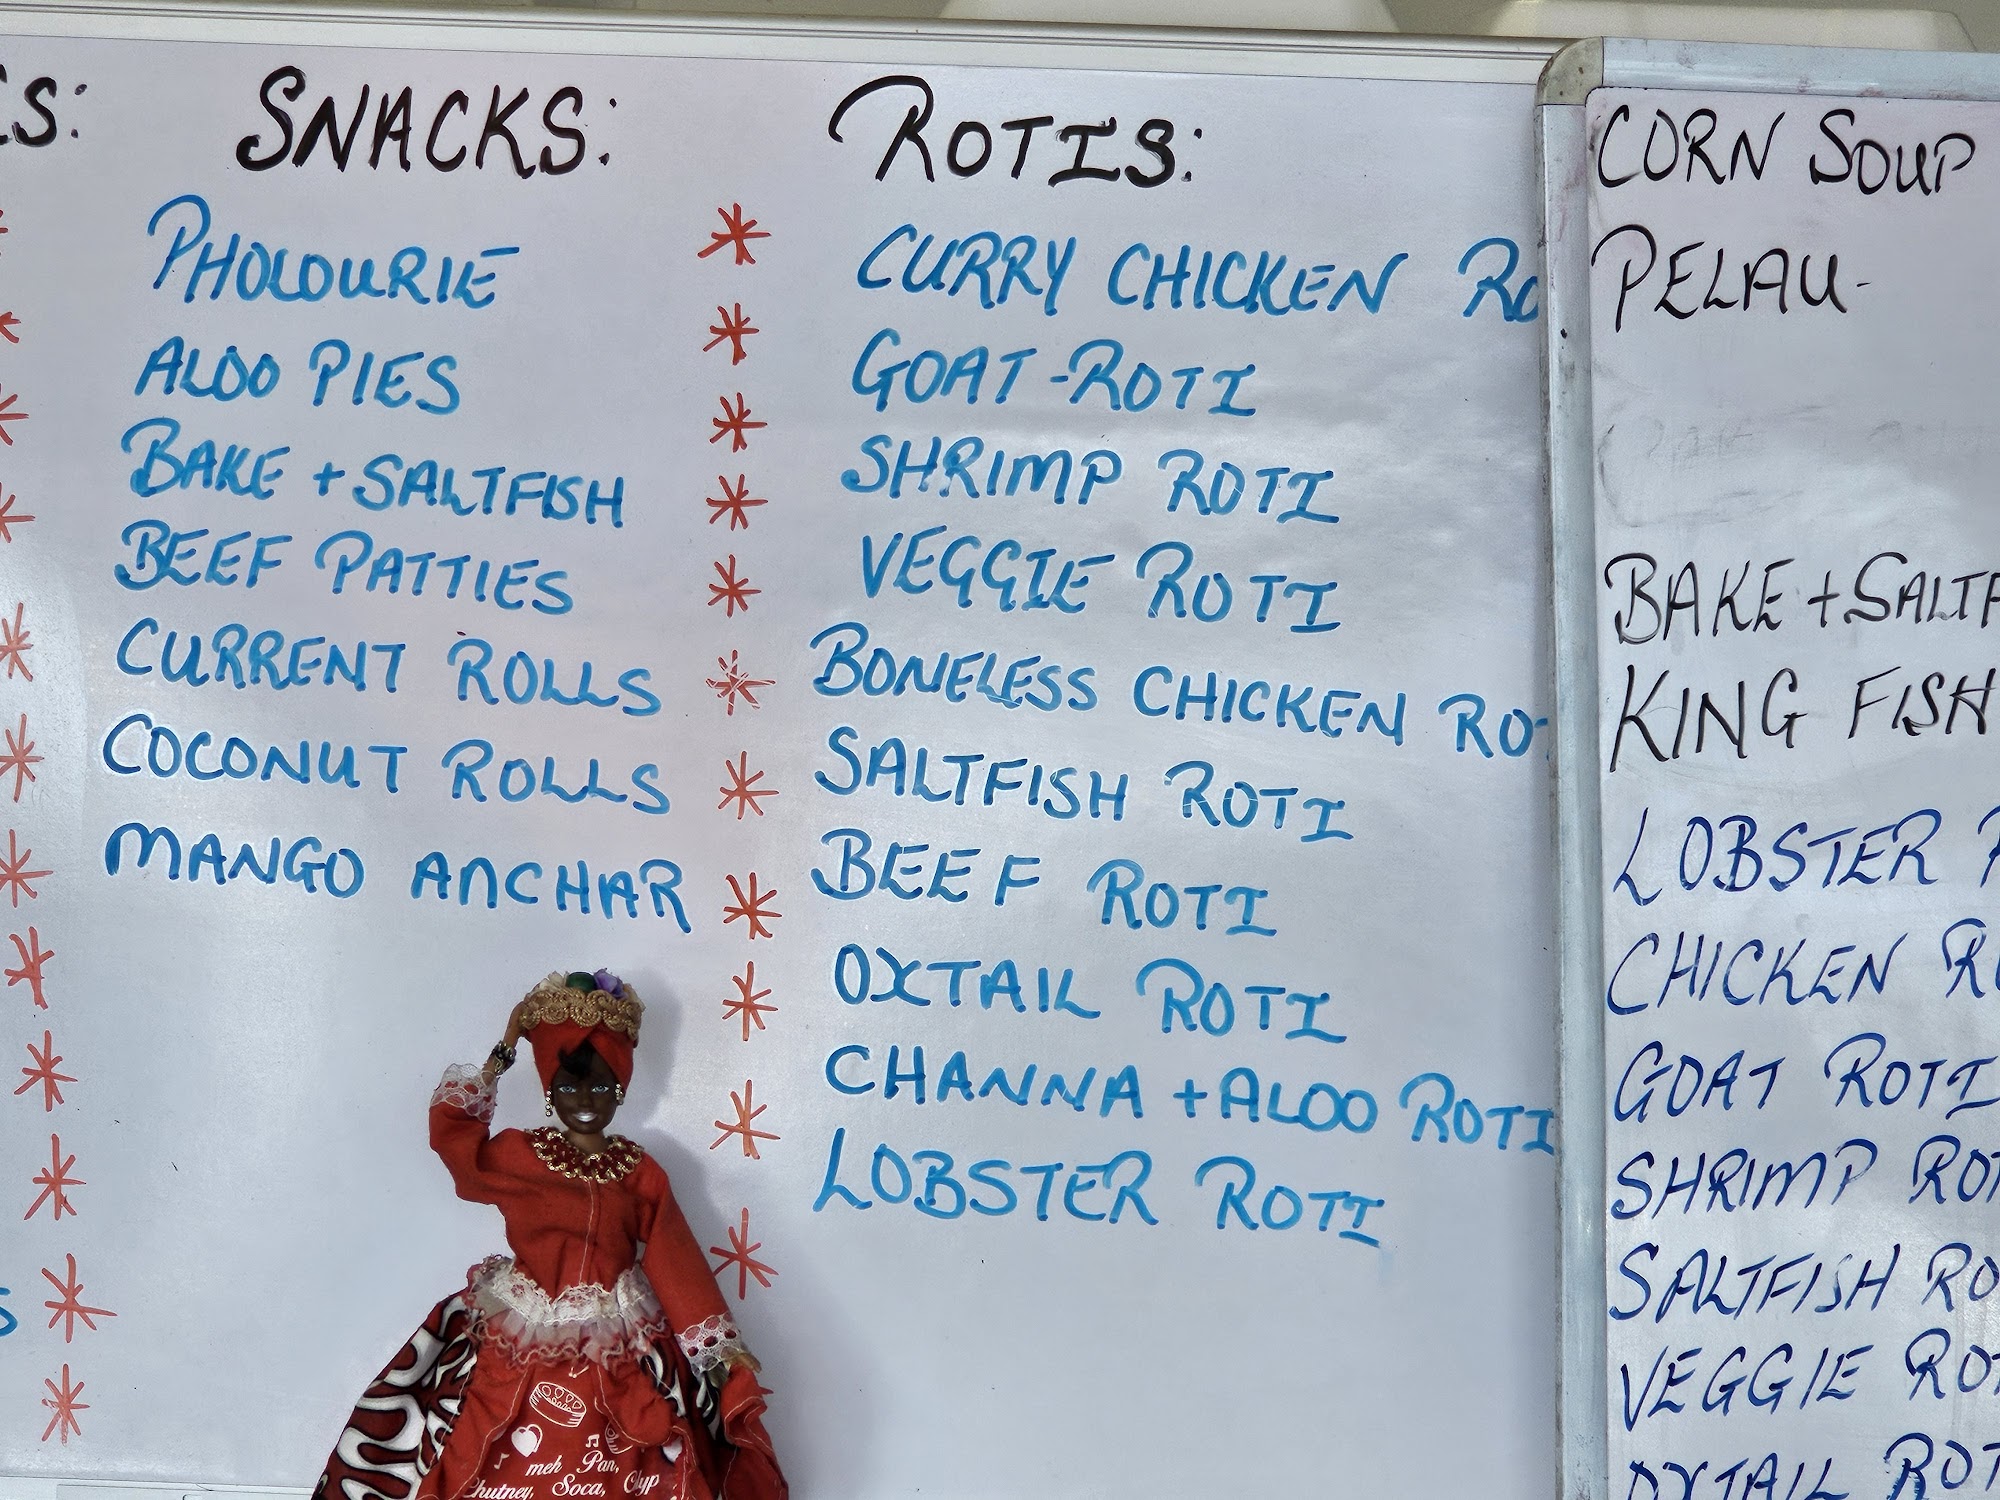 SNACKS:
PHOLOURIE
ALOO PIES
BAKE + SALTFISH
BEEF PATTIES
CURRENT ROLLS
COCONUT ROLLS
MANGO ANCHAR
ROTIS:
CURRY CHICKEN RO
GOAT-ROTI
SHRIMP ROTI
VEGGIE ROTI
BONELESS CHICKEN ROT
SALTFISH ROTI
BEEF ROTI
OXTAIL ROTI
CHANNA + ALOO ROTI
LOBSTER ROTI
CORN SOUP
PELAU-
BAKE + SALTF
KING FISH
LOBSTER R
CHICKEN RO
GOAT ROTI
SHRIMP ROT
SALTFISH RO
VEGGIE ROT
OXTAIL ROT
meh Pan,
Chutney, Soca, Clyp